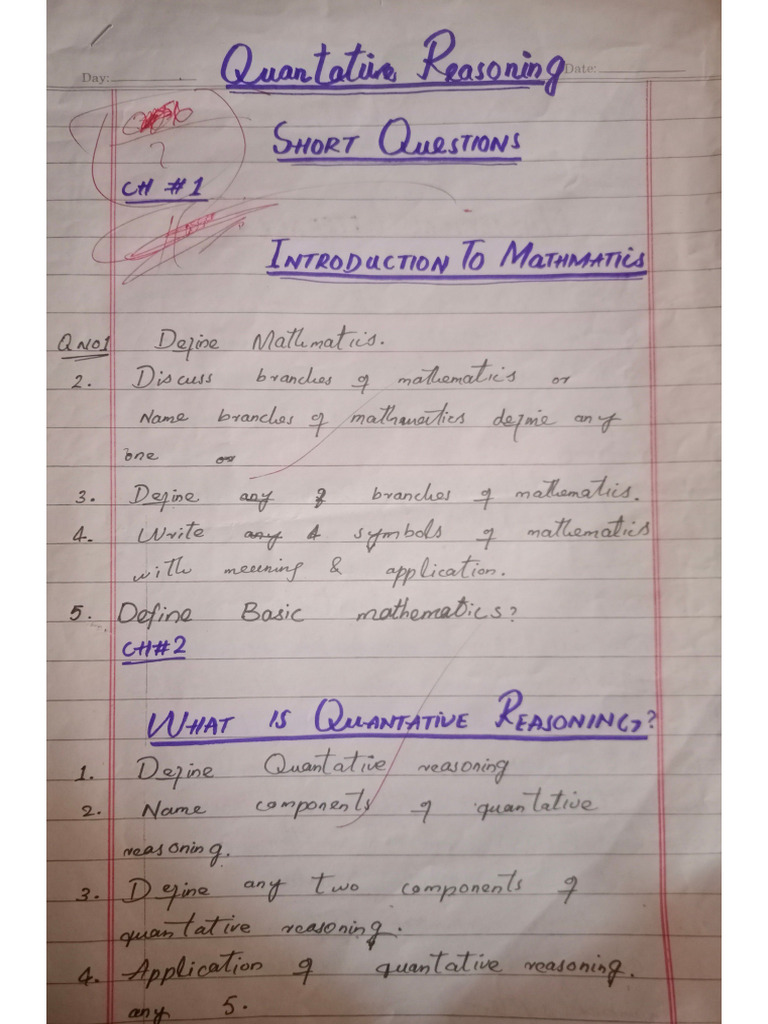 Quantative Reasoning
Day: Date:
SHORT QUESTIONS
CH #1
INTRODUCTION TO MATHMATICS
Q NO1 Define Mathmatics.
2. Discuss branches of mathematics or
Name branches of mathematics define any
one or
3. Define any of branches of mathematics.
4. Write any 4 symbols of mathematics
with meening & application.
5. Define Basic mathematics?
CH#2
WHAT IS QUANTATIVE REASONING?
1. Define Quantative reasoning
2. Name components of quantative
reasoning.
3. Define any two components of
quantative reasoning.
4. Application of quantative reasoning.
any 5.